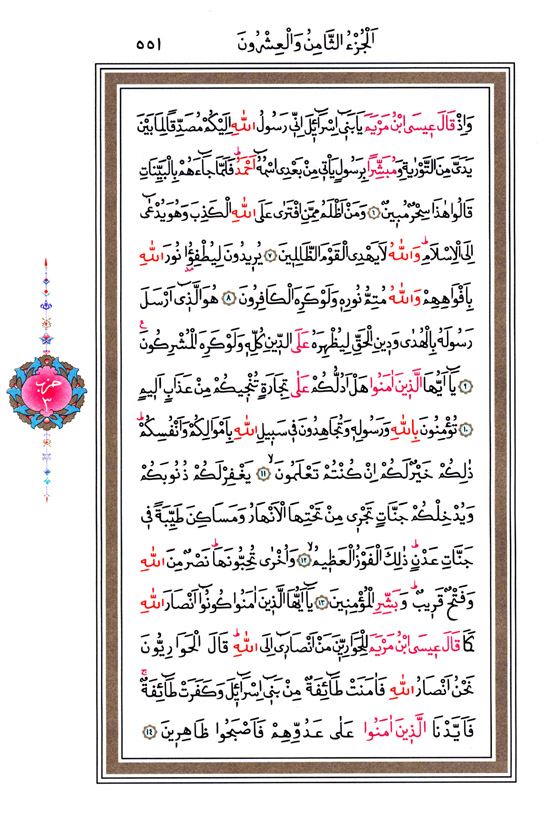 اَلْجُزْءُ الثَّامِنُ وَالْعِشْرُونَ ٥٥١
وَاِذْ قَالَ عٖيسَى ابْنُ مَرْيَمَ يَا بَنٖٓي اِسْرَٓائٖلَ اِنّٖي رَسُولُ اللّٰهِ اِلَيْكُمْ مُصَدِّقًا لِمَا بَيْنَ
يَدَيَّ مِنَ التَّوْرٰيةِ وَمُبَشِّرًا بِرَسُولٍ يَاْتٖي مِنْ بَعْدِي اسْمُهُٓ اَحْمَدُۜ فَلَمَّا جَٓاءَهُمْ بِالْبَيِّنَاتِ
قَالُوا هٰذَا سِحْرٌ مُبٖينٌ ﴿٦﴾ وَمَنْ اَظْلَمُ مِمَّنِ افْتَرٰى عَلَى اللّٰهِ الْكَذِبَ وَهُوَ يُدْعٰٓى
اِلَى الْاِسْلَامِۜ وَاللّٰهُ لَا يَهْدِي الْقَوْمَ الظَّالِمٖينَ ﴿٧﴾ يُرٖيدُونَ لِيُطْفِؤُ۫ا نُورَ اللّٰهِ
بِاَفْوَاهِهِمْ وَاللّٰهُ مُتِمُّ نُورِهٖ وَلَوْ كَرِهَ الْكَافِرُونَ ﴿٨﴾ هُوَ الَّذٖٓي اَرْسَلَ
رَسُولَهُ بِالْهُدٰى وَدٖينِ الْحَقِّ لِيُظْهِرَهُ عَلَى الدّٖينِ كُلِّهٖ وَلَوْ كَرِهَ الْمُشْرِكُونَ ع
﴿٩﴾ يَٓا اَيُّهَا الَّذٖينَ اٰمَنُوا هَلْ اَدُلُّكُمْ عَلٰى تِجَارَةٍ تُنْجٖيكُمْ مِنْ عَذَابٍ اَلٖيمٍ
﴿١٠﴾ تُؤْمِنُونَ بِاللّٰهِ وَرَسُولِهٖ وَتُجَاهِدُونَ فٖي سَبٖيلِ اللّٰهِ بِاَمْوَالِكُمْ وَاَنْفُسِكُمْۜ
ذٰلِكُمْ خَيْرٌ لَكُمْ اِنْ كُنْتُمْ تَعْلَمُونَۙ ﴿١١﴾ يَغْفِرْ لَكُمْ ذُنُوبَكُمْ
وَيُدْخِلْكُمْ جَنَّاتٍ تَجْرٖي مِنْ تَحْتِهَا الْاَنْهَارُ وَمَسَاكِنَ طَيِّبَةً فٖي
جَنَّاتِ عَدْنٍۜ ذٰلِكَ الْفَوْزُ الْعَظٖيمُۙ ﴿١٢﴾ وَاُخْرٰى تُحِبُّونَهَاۜ نَصْرٌ مِنَ اللّٰهِ
وَفَتْحٌ قَرٖيبٌۜ وَبَشِّرِ الْمُؤْمِنٖينَ ﴿١٣﴾ يَٓا اَيُّهَا الَّذٖينَ اٰمَنُوا كُونُٓوا اَنْصَارَ اللّٰهِ
كَمَا قَالَ عٖيسَى ابْنُ مَرْيَمَ لِلْحَوَارِيّٖنَ مَنْ اَنْصَارٖٓي اِلَى اللّٰهِۜ قَالَ الْحَوَارِيُّونَ
نَحْنُ اَنْصَارُ اللّٰهِ فَاٰمَنَتْ طَٓائِفَةٌ مِنْ بَنٖٓي اِسْرَٓائٖلَ وَكَفَرَتْ طَٓائِفَةٌۚ
فَاَيَّدْنَا الَّذٖينَ اٰمَنُوا عَلٰى عَدُوِّهِمْ فَاَصْبَحُوا ظَاهِرٖينَ ﴿١٤﴾
حزب
٣